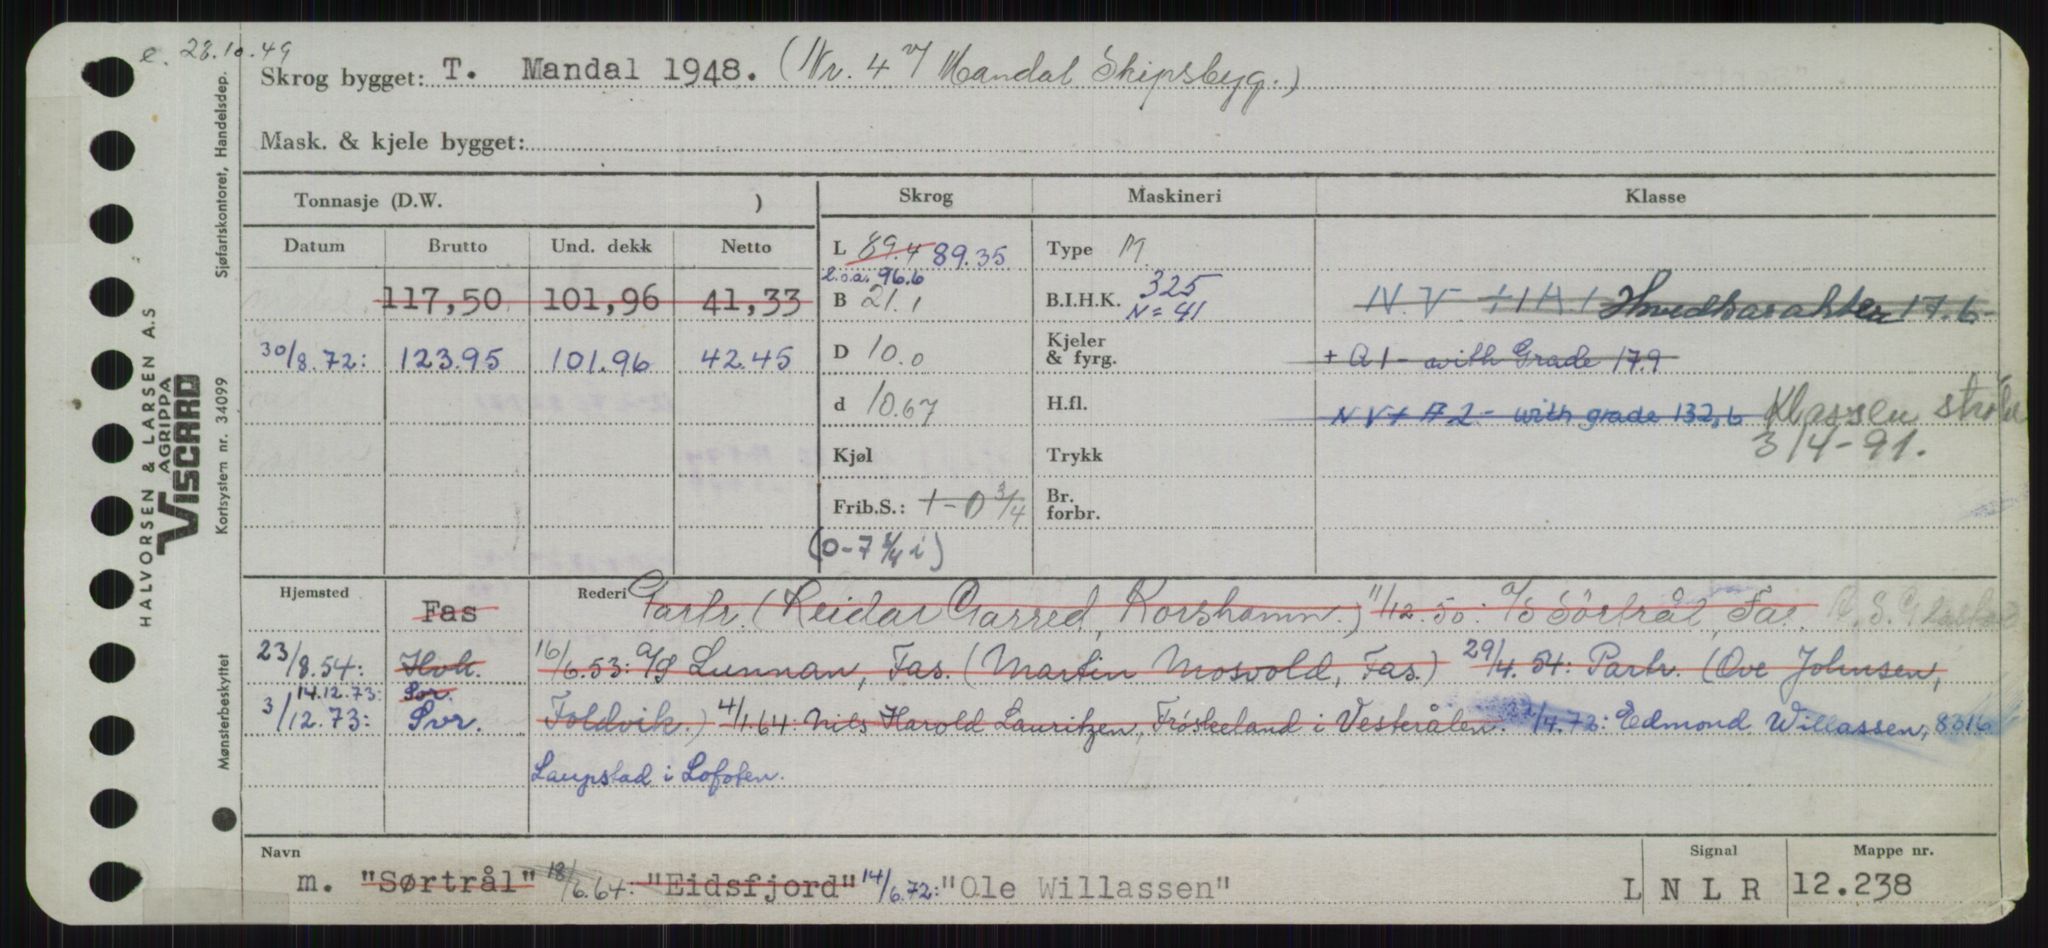 e. 28.10.49
Skrog bygget: T. Mandal 1948. (Nr. 4 v/ Mandal Skipsbyg.)
Mask. & kjele bygget:
Tonnasje (D.W. )
Skrog
Maskineri
Klasse
Datum Brutto Und. dekk Netto
117,50 101,96 41,33
30/8.72: 123.95 101.96 42.45
L 89.4 89.35
l.o.a. 96.6
B 21.1
D 10.0
d 10.67
Kjøl
Frib.S.: 1-0 3/4
(0-7 1/4 i)
Type M
B.I.H.K. 325
N=41
Kjeler
& fyrg.
H.fl.
Trykk
Br.
forbr.
N.V. +1A.1 Hovedkarakter 17.6
+ A1- with Grade 17.9
NV+ A2- with grade 132,6 Klassen
3/4-91.
Hjemsted Fas Rederi Partr. (Reidar Garred, Korshamn.) 11/12.50: A/S Sørtrål, Fas.
23/8.54: Hvk. 16/6.53: A/S Lunnan, Fas. (Martin Mosvold, Fas.) 29/4.54: Partr. (Ove Johnsen,
14.12.73: Sor.
3/12.73: Svr. Foldvik.) 4/1.64: Nils Harold Lauritzen, Frøskeland i Vesterålen. 22/4.72: Edmond Willassen, 8316
Laupstad i Lofoten.
Navn Signal Mappe nr.
m. "Sørtrål" 18/6.64: "Eidsfjord" 14/6.72: "Ole Willassen" L N L R 12.238
HALVORSEN & LARSEN A.S
AGRIPPA
VISCARD
Mønsterbeskyttet Kortsystem nr. 34099 Sjøfartskontoret, Handelsdep.